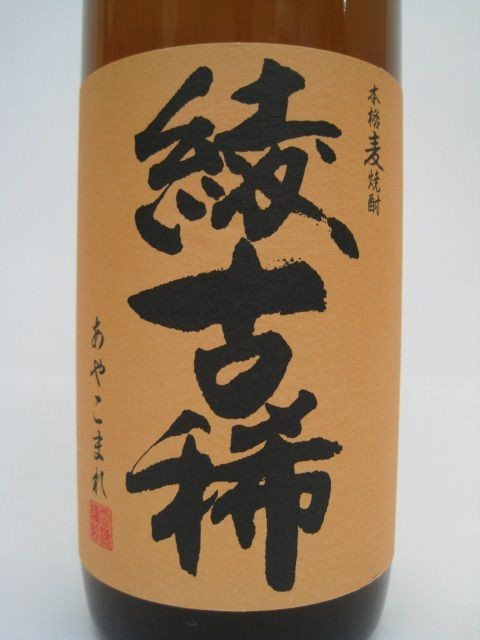 本格麦焼酎
綾古稀
あやこまれ